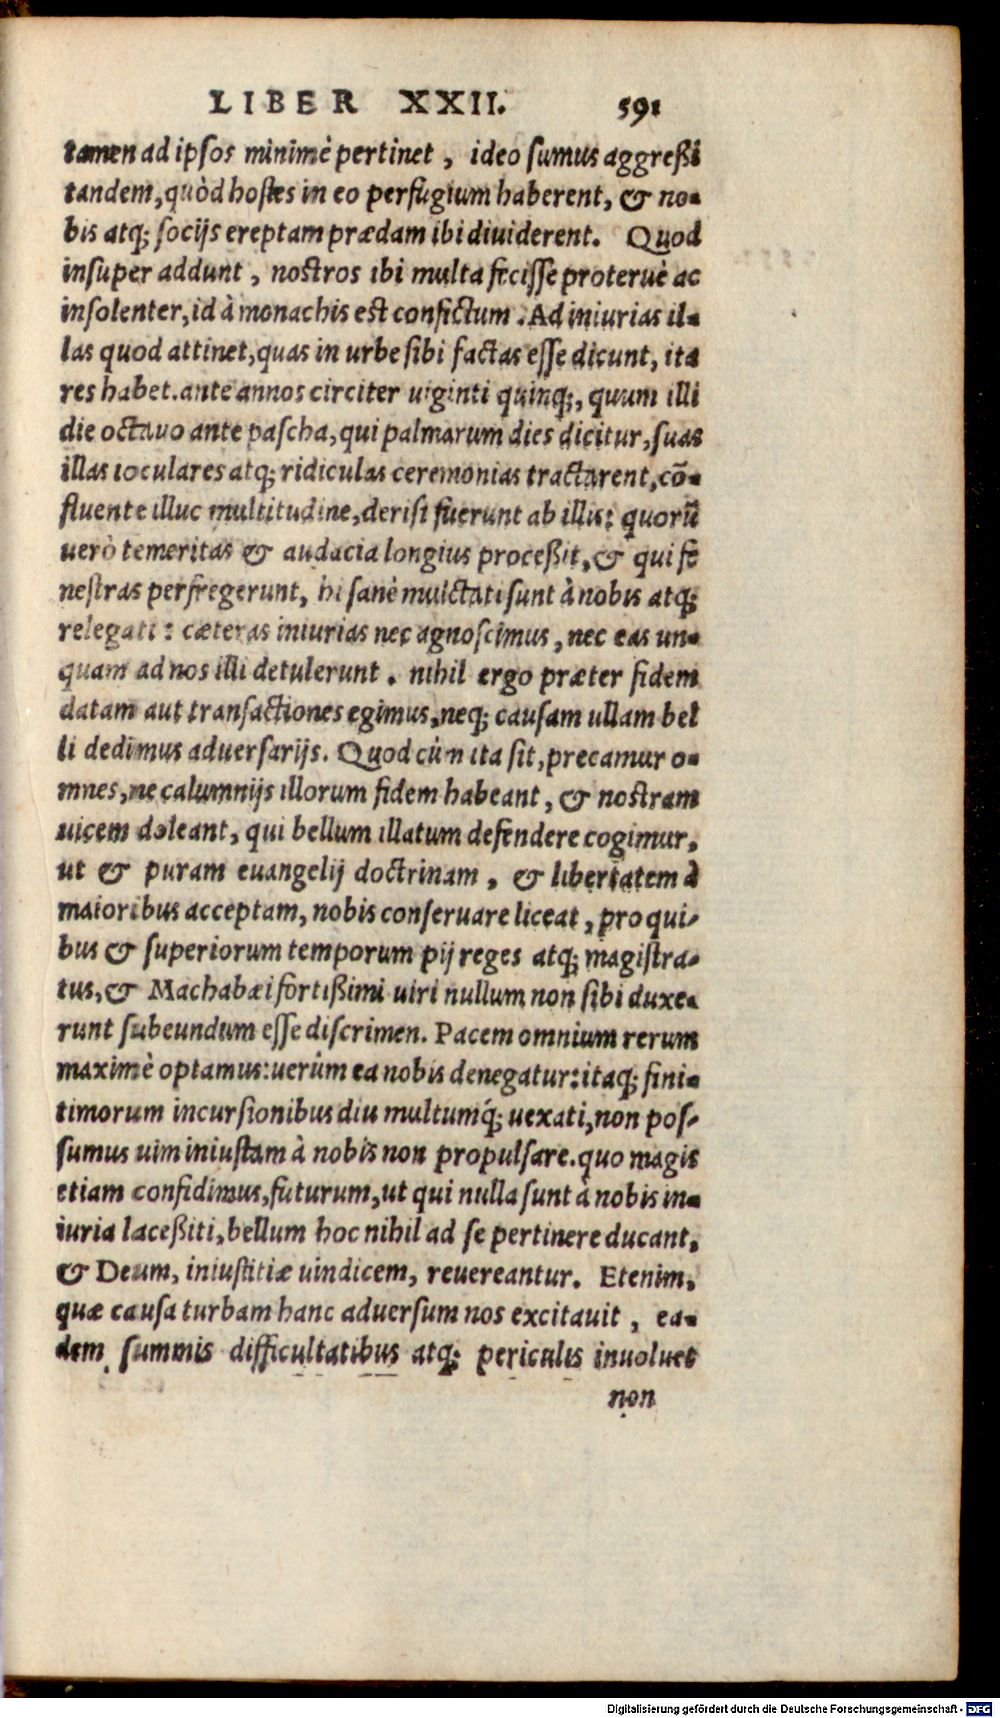 LIBER XXII. 591
tamen ad ipſos minimè pertinet, ideo ſumus aggreßi
tandem, quòd hostes in eo perfugium haberent, & no-
bis atq; ſocijs ereptam prædam ibi diuiderent. Quod
inſuper addunt, nostros ibi multa feciſſe proteruè ac
inſolenter, id à monachis est confictum. Ad iniurias il-
las quod attinet, quas in urbe ſibi factas eſſe dicunt, ita
res habet. ante annos circiter uiginti quinq;, quum illi
die octauo ante paſcha, qui palmarum dies dicitur, ſuas
illas ioculares atq; ridiculas ceremonias tractarent, cō-
fluente illuc multitudine, deriſi fuerunt ab illis: quorū
uerò temeritas & audacia longius proceßit, & qui fe
neſtras perfregerunt, hi ſanè mulctati sunt à nobis atq;
relegati: cæteras iniurias nec agnoſcimus, nec eas un-
quam ad nos illi detulerunt. nihil ergo præter fidem
datam aut transactiones egimus, neq; cauſam ullam bel
li dedimus aduerſarijs. Quod cùm ita ſit, precamur o-
mnes, ne calumnijs illorum fidem habeant, & nostram
uicem doleant, qui bellum illatum defendere cogimur,
ut & puram euangelij doctrinam, & libertatem à
maioribus acceptam, nobis conſeruare liceat, pro qui-
bus & ſuperiorum temporum pij reges atq; magiſtra-
tus, & Machabæi fortißimi uiri nullum non ſibi duxe-
runt ſubeundum eſſe diſcrimen. Pacem omnium rerum
maximè optamus: uerùm ea nobis denegatur: itaq; fini-
timorum incurſionibus diu multumq́; uexati, non poſ-
ſumus uim iniuſtam à nobis non propulſare. quo magis
etiam confidimus, futurum, ut qui nulla ſunt à nobis in-
iuria laceßiti, bellum hoc nihil ad ſe pertinere ducant,
& Deum, iniuſtitiæ uindicem, reuereantur. Etenim,
quæ cauſa turbam hanc aduerſum nos excitauit, ea-
dem ſummis difficultatibus atq; periculis inuoluet
non
Digitalisierung gefördert durch die Deutsche Forschungsgemeinschaft - DFG